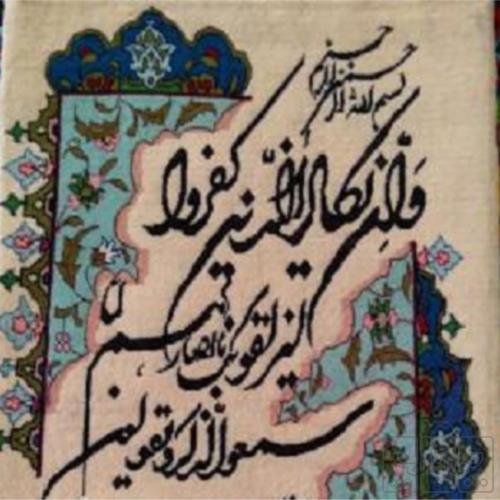 بسم الله الرحمن الرحیم
وَاِن یکاد الذین کفروا
لیزلقونک بابصارهم لما
سمعوا الذکر و یقولون